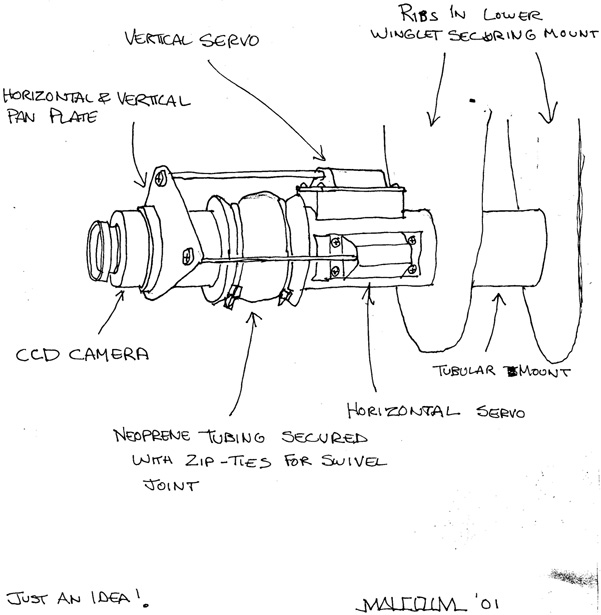 RIBS IN LOWER
WINGLET SECURING MOUNT
VERTICAL SERVO
HORIZONTAL & VERTICAL
PAN PLATE
CCD CAMERA
TUBULAR MOUNT
HORIZONTAL SERVO
NEOPRENE TUBING SECURED
WITH ZIP-TIES FOR SWIVEL
JOINT
JUST AN IDEA!
MALCOLM '01